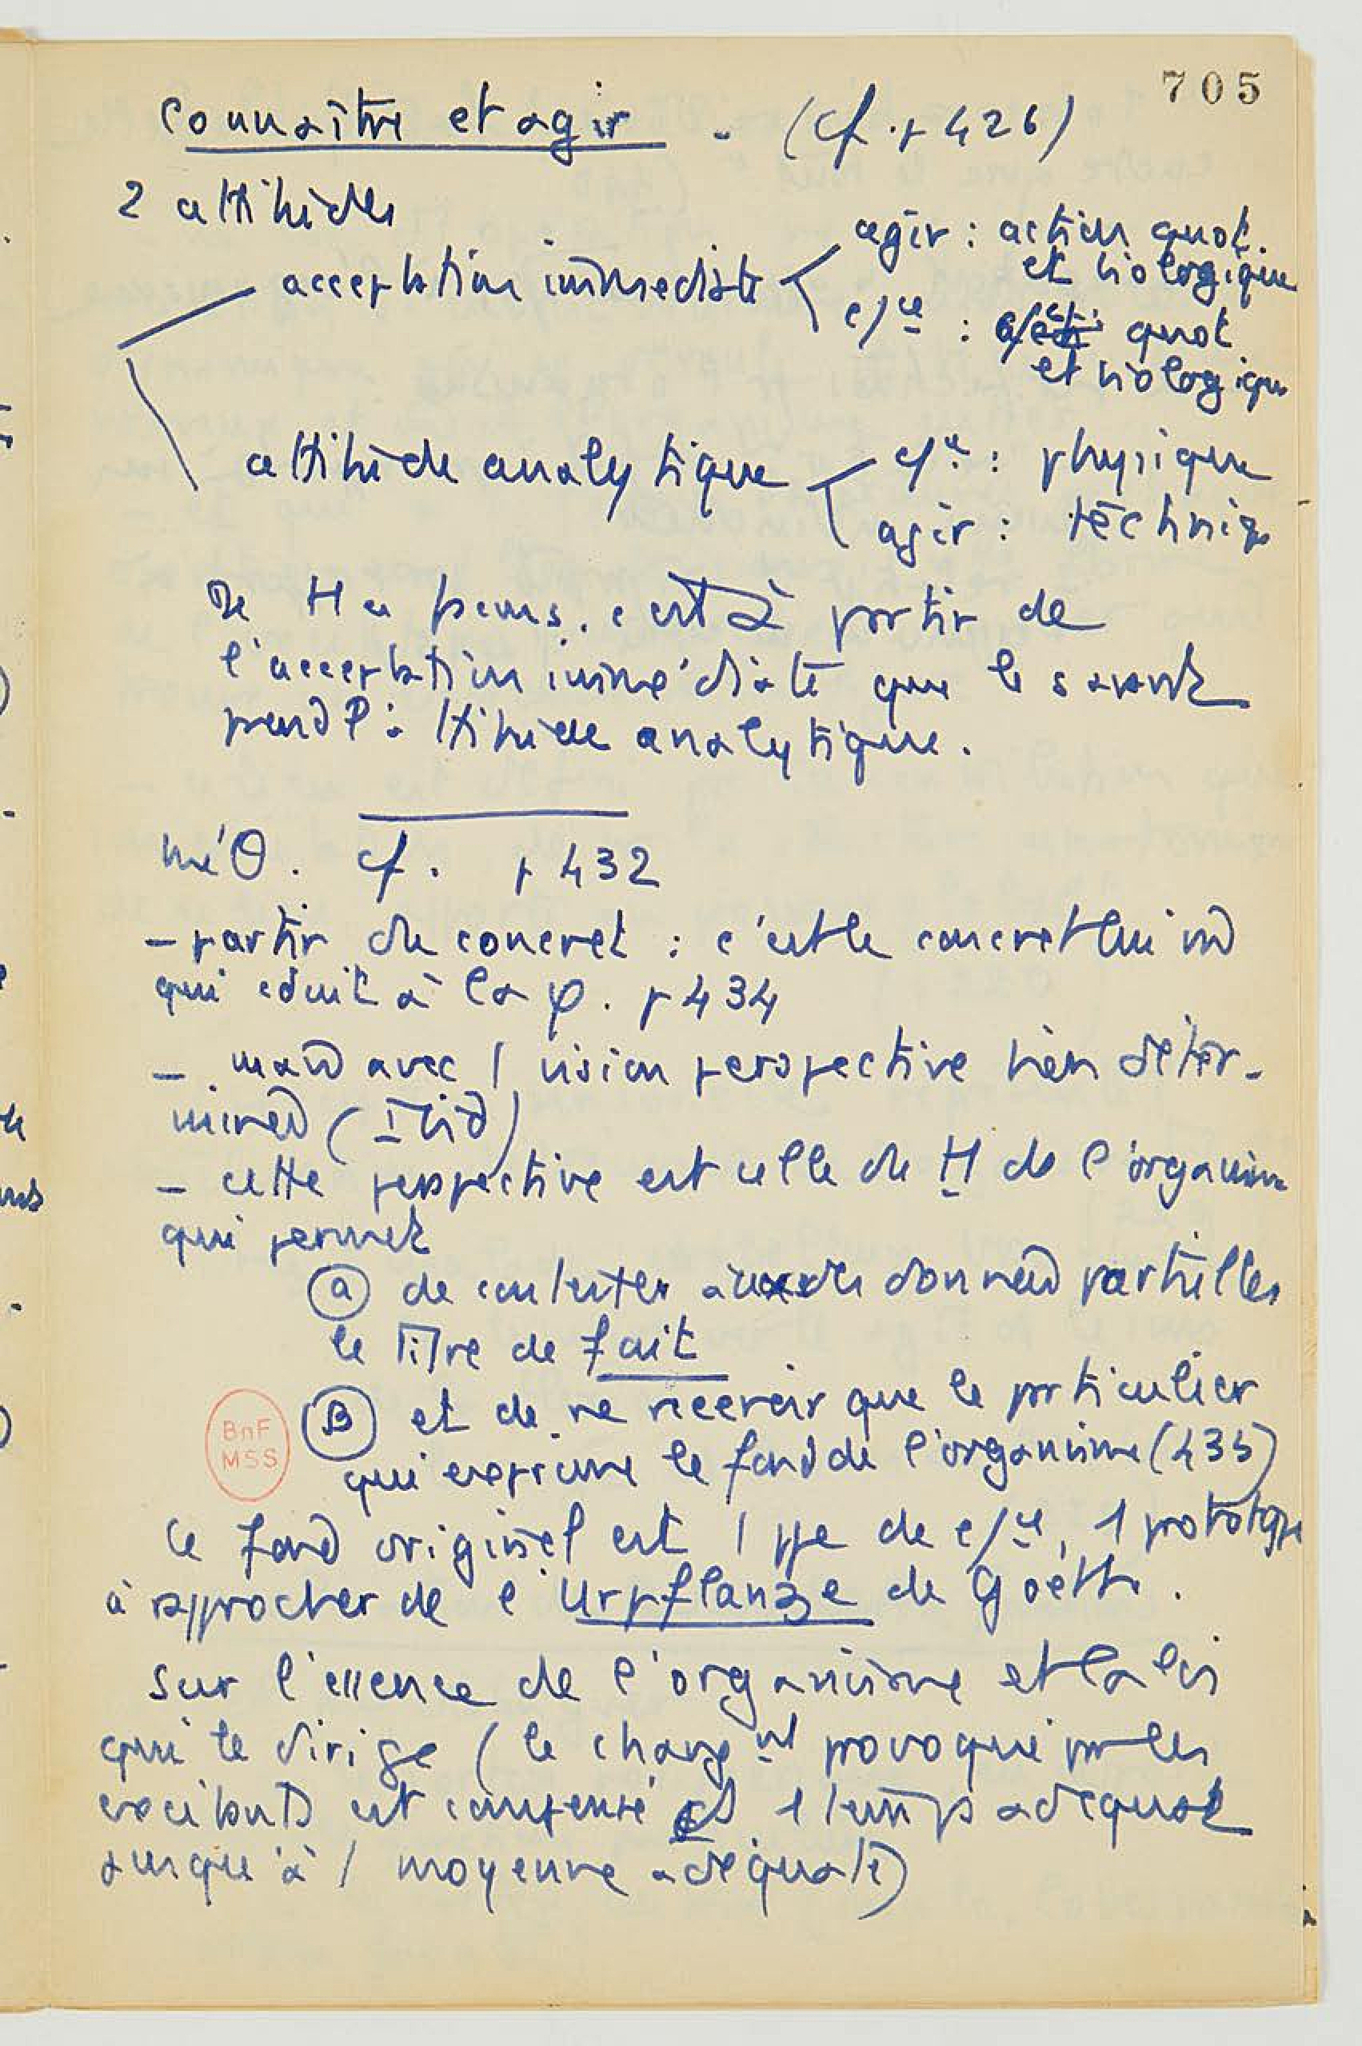 705
Connaître et agir - (cf. p 426)
2 attitudes
acceptation immediate
agir : action quot.
et biologique
c/ce : quot
et biologique
attitude analytique
c/ce : physique
agir : techniq
De H a pens. c'est à partir de
l'acceptation immédiate que le savant
prend l'attitude analytique.
méθ. cf. p 432
- partir du concret : c'est le concret lui md
qui cduit à la φ. p 434
- mais avec 1 vision perspective bien déter-
minée (Ibid)
- cette perspective est celle du H de l'organisme
qui permet
(a) de contester aux données partielles
le titre de fait
(B) et de ne recevoir que le particulier
qui exprime le fond de l'organisme (435)
BnF
MSS
Ce fond originel est 1 ppe de c/ce, 1 prototype
à rapprocher de l'Urpflanze de Goethe.
Sur l'essence de l'organisme et la loi
qui le dirige (le changnt provoqué par les
excitants est compensé 1 temps adéquat
jusqu'à 1 moyenne adéquate)